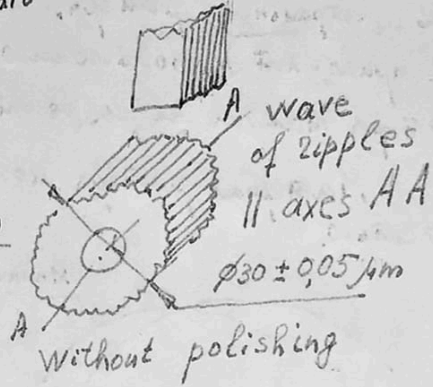 A wave
of ripples
|| axes AA
ϕ30 ± 0,05 μm
A
Without polishing